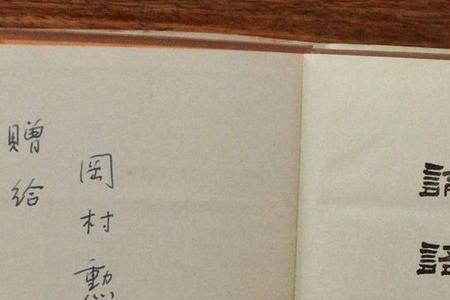 贈給
岡村勲